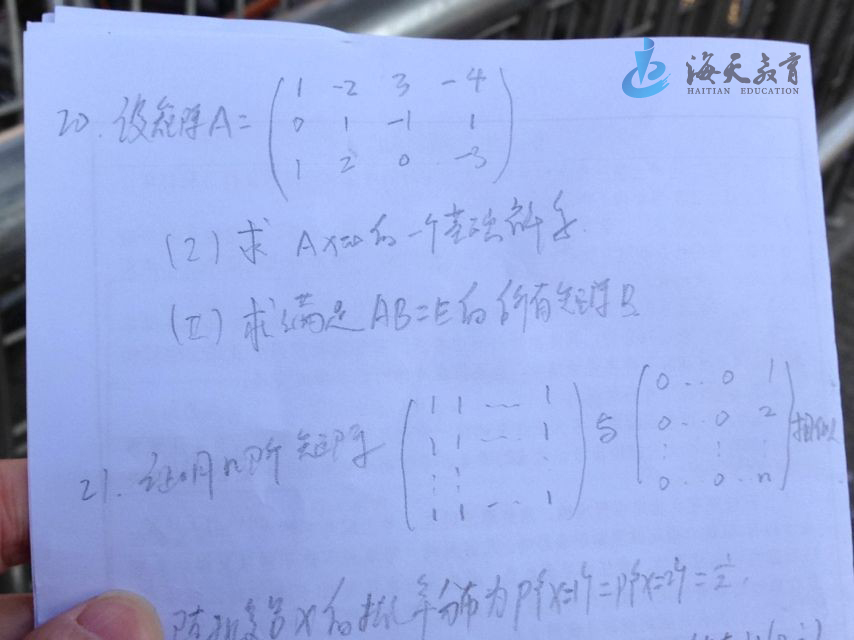 海天教育
HAITIAN EDUCATION
20. 设矩阵A=
1 -2 3 -4
0 1 -1 1
1 2 0 -3
(I) 求 Ax=0的一个基础解系.
(II) 求满足AB=E的所有矩阵B
21. 证明n阶矩阵 与 相似
1 1 ... 1
1 1 ... 1
⋮ ⋮ ⋮
1 1 ... 1
0 ... 0 1
0 ... 0 2
⋮ ⋮ ⋮
0 ... 0 n
随机变量X的概率分布为P{X=1}=P{X=2}=1/2,